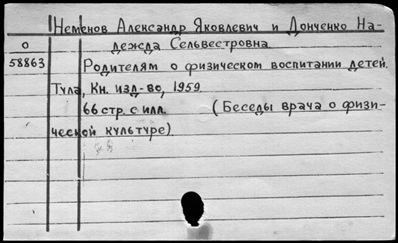 Неменов Александр Яковлевич и Донченко На-
О дежда Сельвестровна
58863 Родителям о физическом воспитании детей.
Тула, Кн. изд-во, 1959
66 стр. с илл. (Беседы врача о физи-
ческой культуре)